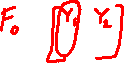 F₀ [Y₁ Y₂]